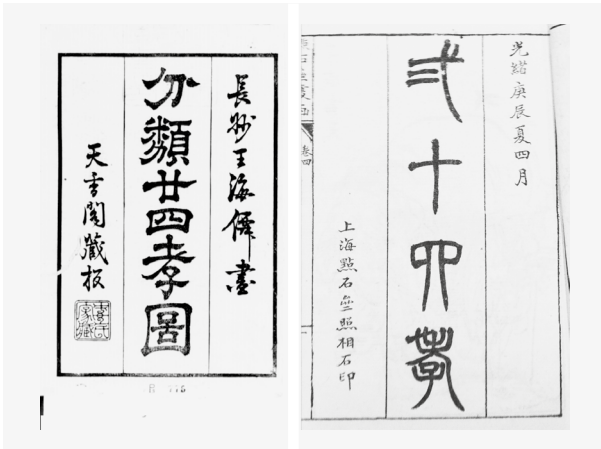 長沙王海僊畫
分類廿四孝圖
天香閣藏板
光緒庚辰夏四月
弍十四孝
上海點石齋照相石印
卷四